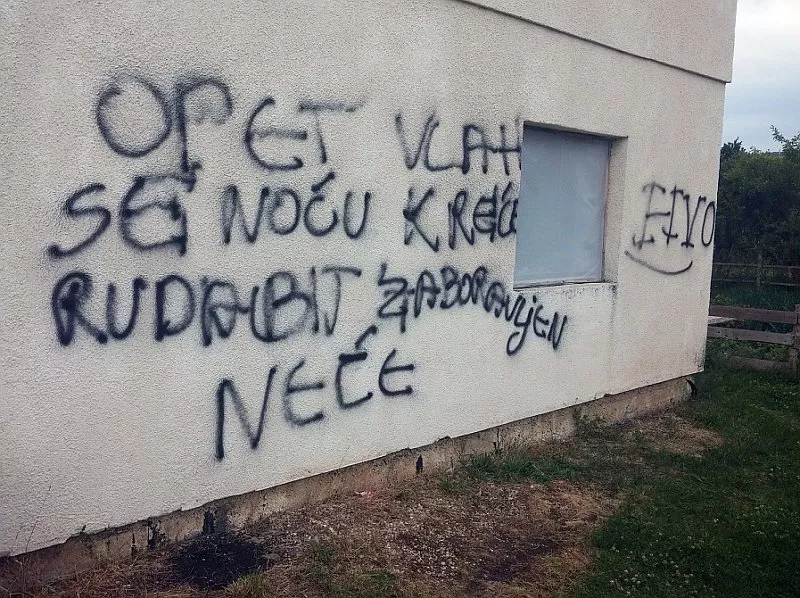 OPET VLAH
SE NOĆU KREĆE
RUDA BIT ZABORAVljEN
NEĆE